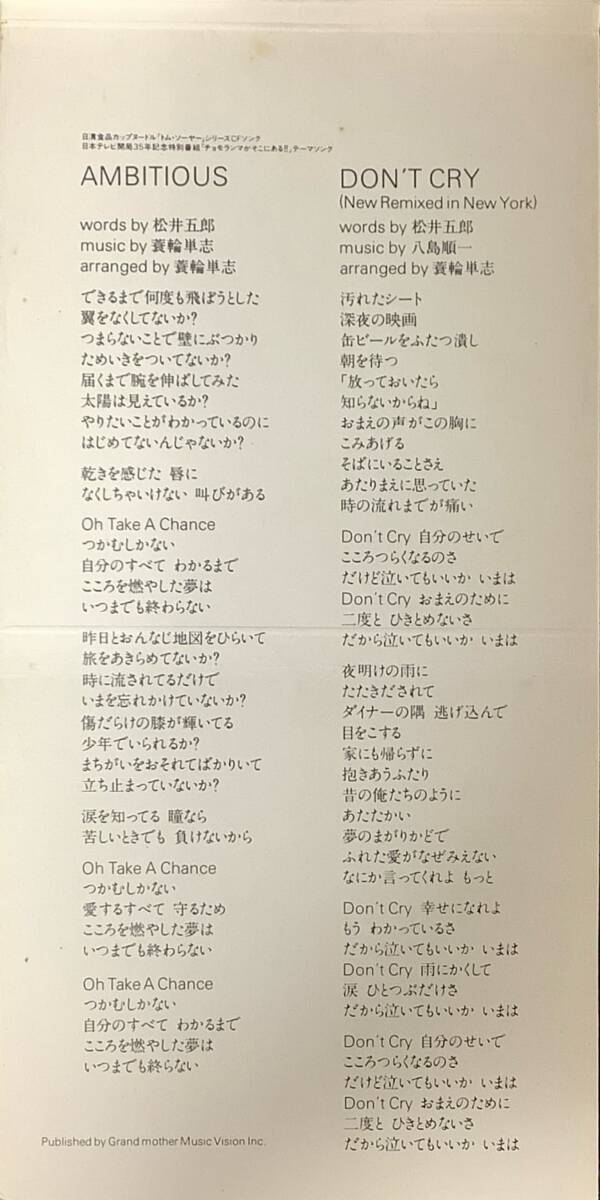 日清食品カップヌードル「トム・ソーヤー」シリーズCFソング
日本テレビ開局35年記念特別番組「チョモランマがそこにある!!」テーマソング
AMBITIOUS
words by 松井五郎
music by 蓑輪単志
arranged by 蓑輪単志
できるまで何度も飛ぼうとした
翼をなくしてないか?
つまらないことで壁にぶつかり
ためいきをついてないか?
届くまで腕を伸ばしてみた
太陽は見えているか?
やりたいことがわかっているのに
はじめてないんじゃないか?
乾きを感じた 唇に
なくしちゃいけない 叫びがある
Oh Take A Chance
つかむしかない
自分のすべて わかるまで
こころを燃やした夢は
いつまでも終わらない
昨日とおんなじ地図をひらいて
旅をあきらめてないか?
時に流されてるだけで
いまを忘れかけていないか?
傷だらけの膝が輝いてる
少年でいられるか?
まちがいをおそれてばかりいて
立ち止まっていないか?
涙を知ってる 瞳なら
苦しいときでも 負けないから
Oh Take A Chance
つかむしかない
愛するすべて 守るため
こころを燃やした夢は
いつまでも終わらない
Oh Take A Chance
つかむしかない
自分のすべて わかるまで
こころを燃やした夢は
いつまでも終らない
Published by Grand mother Music Vision Inc.
DON'T CRY
(New Remixed in New York)
words by 松井五郎
music by 八島順一
arranged by 蓑輪単志
汚れたシート
深夜の映画
缶ビールをふたつ潰し
朝を待つ
「放っておいたら
知らないからね」
おまえの声がこの胸に
こみあげる
そばにいることさえ
あたりまえに思っていた
時の流れまでが痛い
Don't Cry 自分のせいで
こころつらくなるのさ
だけど泣いてもいいか いまは
Don't Cry おまえのために
二度と ひきとめないさ
だから泣いてもいいか いまは
夜明けの雨に
たたきだされて
ダイナーの隅 逃げ込んで
目をこする
家にも帰らずに
抱きあうふたり
昔の俺たちのように
あたたかい
夢のまがりかどで
ふれた愛がなぜみえない
なにか言ってくれよ もっと
Don't Cry 幸せになれよ
もう わかっているさ
だから泣いてもいいか いまは
Don't Cry 雨にかくして
涙 ひとつぶだけさ
だから泣いてもいいか いまは
Don't Cry 自分のせいで
こころつらくなるのさ
だけど泣いてもいいか いまは
Don't Cry おまえのために
二度と ひきとめないさ
だから泣いてもいいか いまは